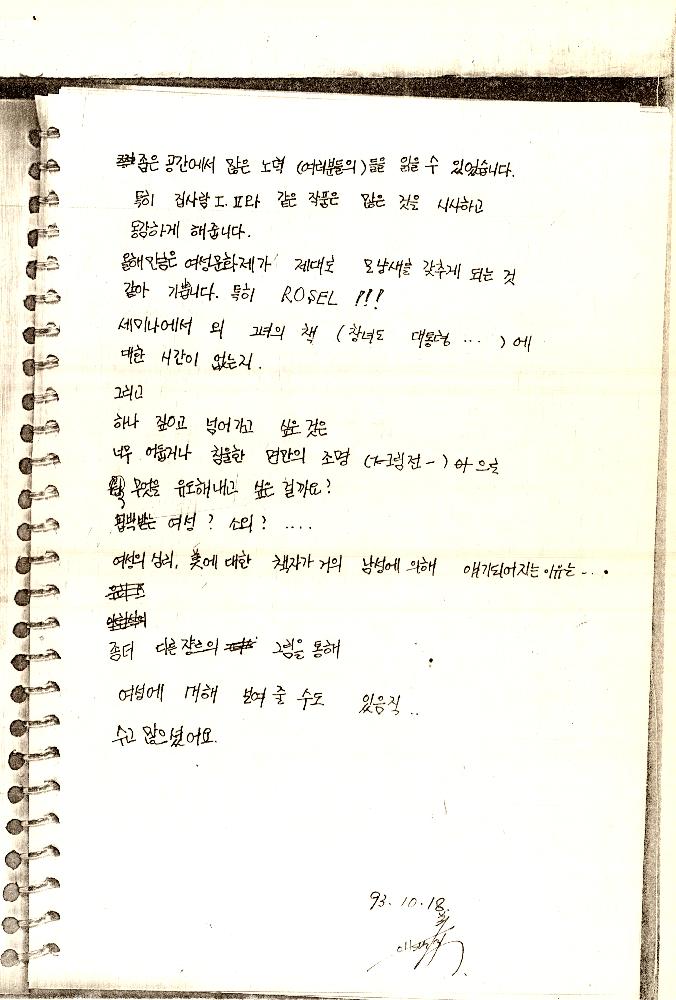 좁은 공간에서 많은 노력 (여러분들의)들을 읽을 수 있었습니다.
특히 집사람 I. II와 같은 작품은 많은 것을 시사하고
통감하게 해줍니다.
올해만큼은 여성문화제가 제대로 모냥새를 갖추게 되는 것
같아 기쁩니다. 특히 ROSEL !!!
세미나에서 왜 그녀의 책 (창녀도 대통령 ...) 에
대한 시간이 없는지.
그리고
하나 짚고 넘어가고 싶은 것은
너무 어둡거나 침울한 면만의 조명 (그림전-)
무엇을 유도해내고 싶은 걸까요?
핍박받는 여성? 소외? ....
여성의 심리, 美에 대한 책자가 거의 남성에 의해 얘기되어지는 이유는....
좀더 다른 쟝르의 그림을 통해
여성에 대해 보여 줄 수도 있음직..
수고 많으셨어요.
93. 10. 18.